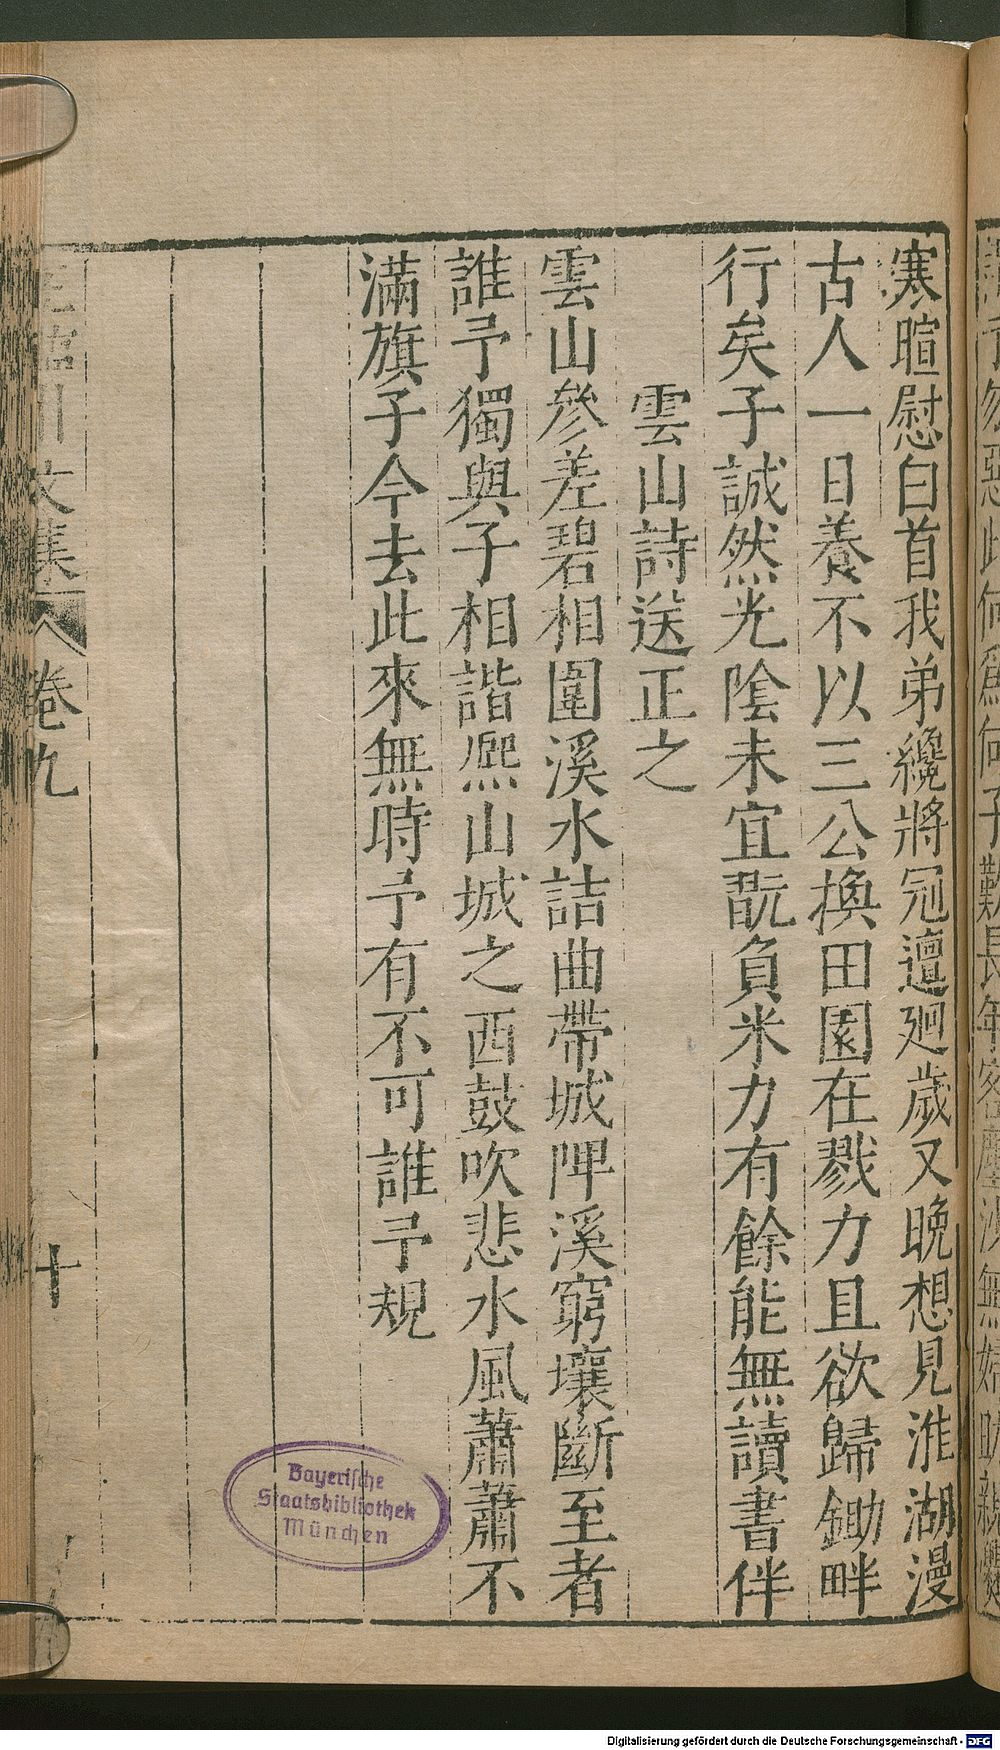 寒暄慰白首我弟纔將冠邅廻歲又晚想見淮湖漫
古人一日養不以三公換田園在戮力且欲歸鋤畔
行矣子誠然光陰未宜翫負米力有餘能無讀書伴
雲山詩送正之
雲山參差碧相圍溪水詰曲帶城陴溪窮壤斷至者
誰予獨與子相諧熈山城之西鼓吹悲水風蕭蕭不
滿旗子今去此來無時予有不可誰予規
文集
卷九
十
Bayerische
Staatsbibliothek
München
Digitalisierung gefördert durch die Deutsche Forschungsgemeinschaft - DFG